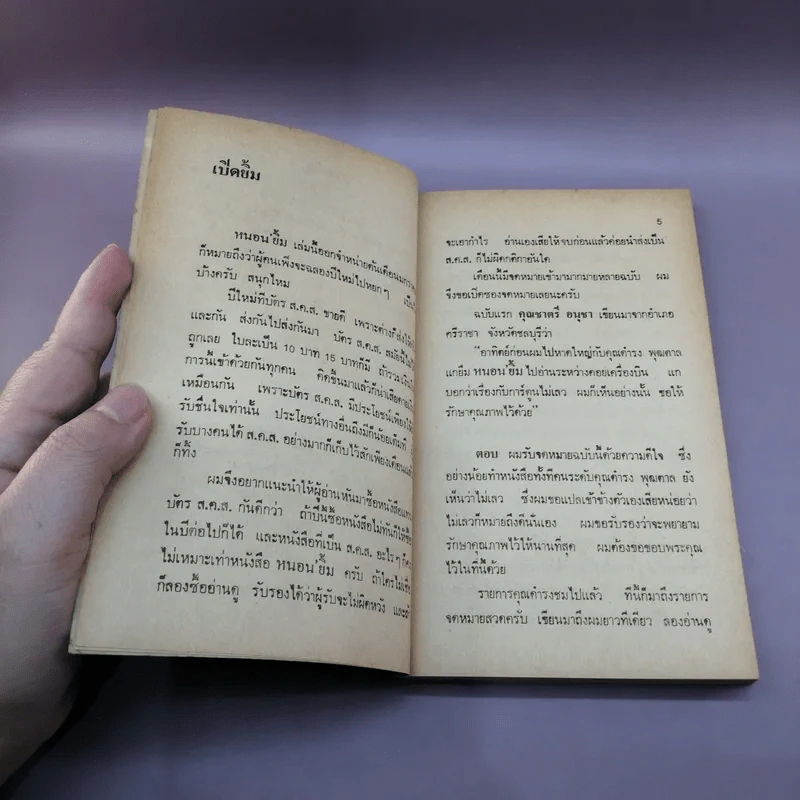 เปิดยิ้ม
หนอน'ยิ้ม เล่มนี้ออกจำหน่ายต้นเดือนมกรา
ก็หมายถึงว่าผู้คนเพิ่งจะฉลองปีใหม่ไปหยกๆ
บ้างครับ สนุกไหม
ปีใหม่ทีบัตร ส.ค.ส. ขายดี เพราะต่างก็ส่งให้
และกัน ส่งกันไปส่งกันมา บัตร ส.ค.ส. สมัยนี้
ถูกเลย ใบละเป็น 10 บาท 15 บาทก็มี ถ้ารวม
การนี้เข้าด้วยกันทุกคน คิดขึ้นมาแล้วก็น่าเสียดาย
เหมือนกัน เพราะบัตร ส.ค.ส. มีประโยชน์เพียงให้
รับชื่นใจเท่านั้น ประโยชน์ทางอื่นถึงมีก็น้อยเต็มที
รับบางคนได้ ส.ค.ส. อย่างมากก็เก็บไว้สักเพียงเดือน
ก็ทิ้ง
ผมจึงอยากแนะนำให้ผู้อ่านหันมาซื้อหนังสือ
บัตร ส.ค.ส. กันดีกว่า ถ้าปีนี้ซื้อหนังสือไม่ทันก็ให้
ในปีต่อไปก็ได้ และหนังสือที่เป็น ส.ค.ส. อะไรๆ ก็
ไม่เหมาะเท่าหนังสือ หนอน'ยิ้ม ครับ ถ้าใครไม่
ก็ลองซื้ออ่านดู รับรองได้ว่าผู้รับจะไม่ผิดหวัง และ
5
จะเอากำไร อ่านเองเสียให้จบก่อนแล้วค่อยนำส่งเป็น
ส.ค.ส. ก็ไม่ผิดกติกาอันใด
เดือนนี้มีจดหมายเข้ามามากมายหลายฉบับ ผม
จึงขอเปิดซองจดหมายเลยนะครับ
ฉบับแรก คุณชาตรี อนุชา เขียนมาจากอำเภอ
ศรีราชา จังหวัดชลบุรีว่า
"อาทิตย์ก่อนผมไปหาดใหญ่กับคุณดำรง พุฒตาล
แกยืม หนอน'ยิ้ม ไปอ่านระหว่างคอยเครื่องบิน แก
บอกว่าเรื่องกับการ์ตูนไม่เลว ผมก็เห็นอย่างนั้น ขอให้
รักษาคุณภาพไว้ด้วย"
ตอบ ผมรับจดหมายฉบับนี้ด้วยความดีใจ ซึ่ง
อย่างน้อยทำหนังสือทั้งทีคนระดับคุณดำรง พุฒตาล ยัง
เห็นว่าไม่เลว ซึ่งผมขอแปลเข้าข้างตัวเองเสียหน่อยว่า
ไม่เลวก็หมายถึงดีนั่นเอง ผมขอรับรองว่าจะพยายาม
รักษาคุณภาพไว้ให้นานที่สุด ผมต้องขอขอบพระคุณ
ไว้ในที่นี้ด้วย
รายการคุณดำรงชมไปแล้ว ทีนี้ก็มาถึงรายการ
จดหมายสวดครับ เขียนมาถึงผมยาวทีเดียว ลองอ่านดู